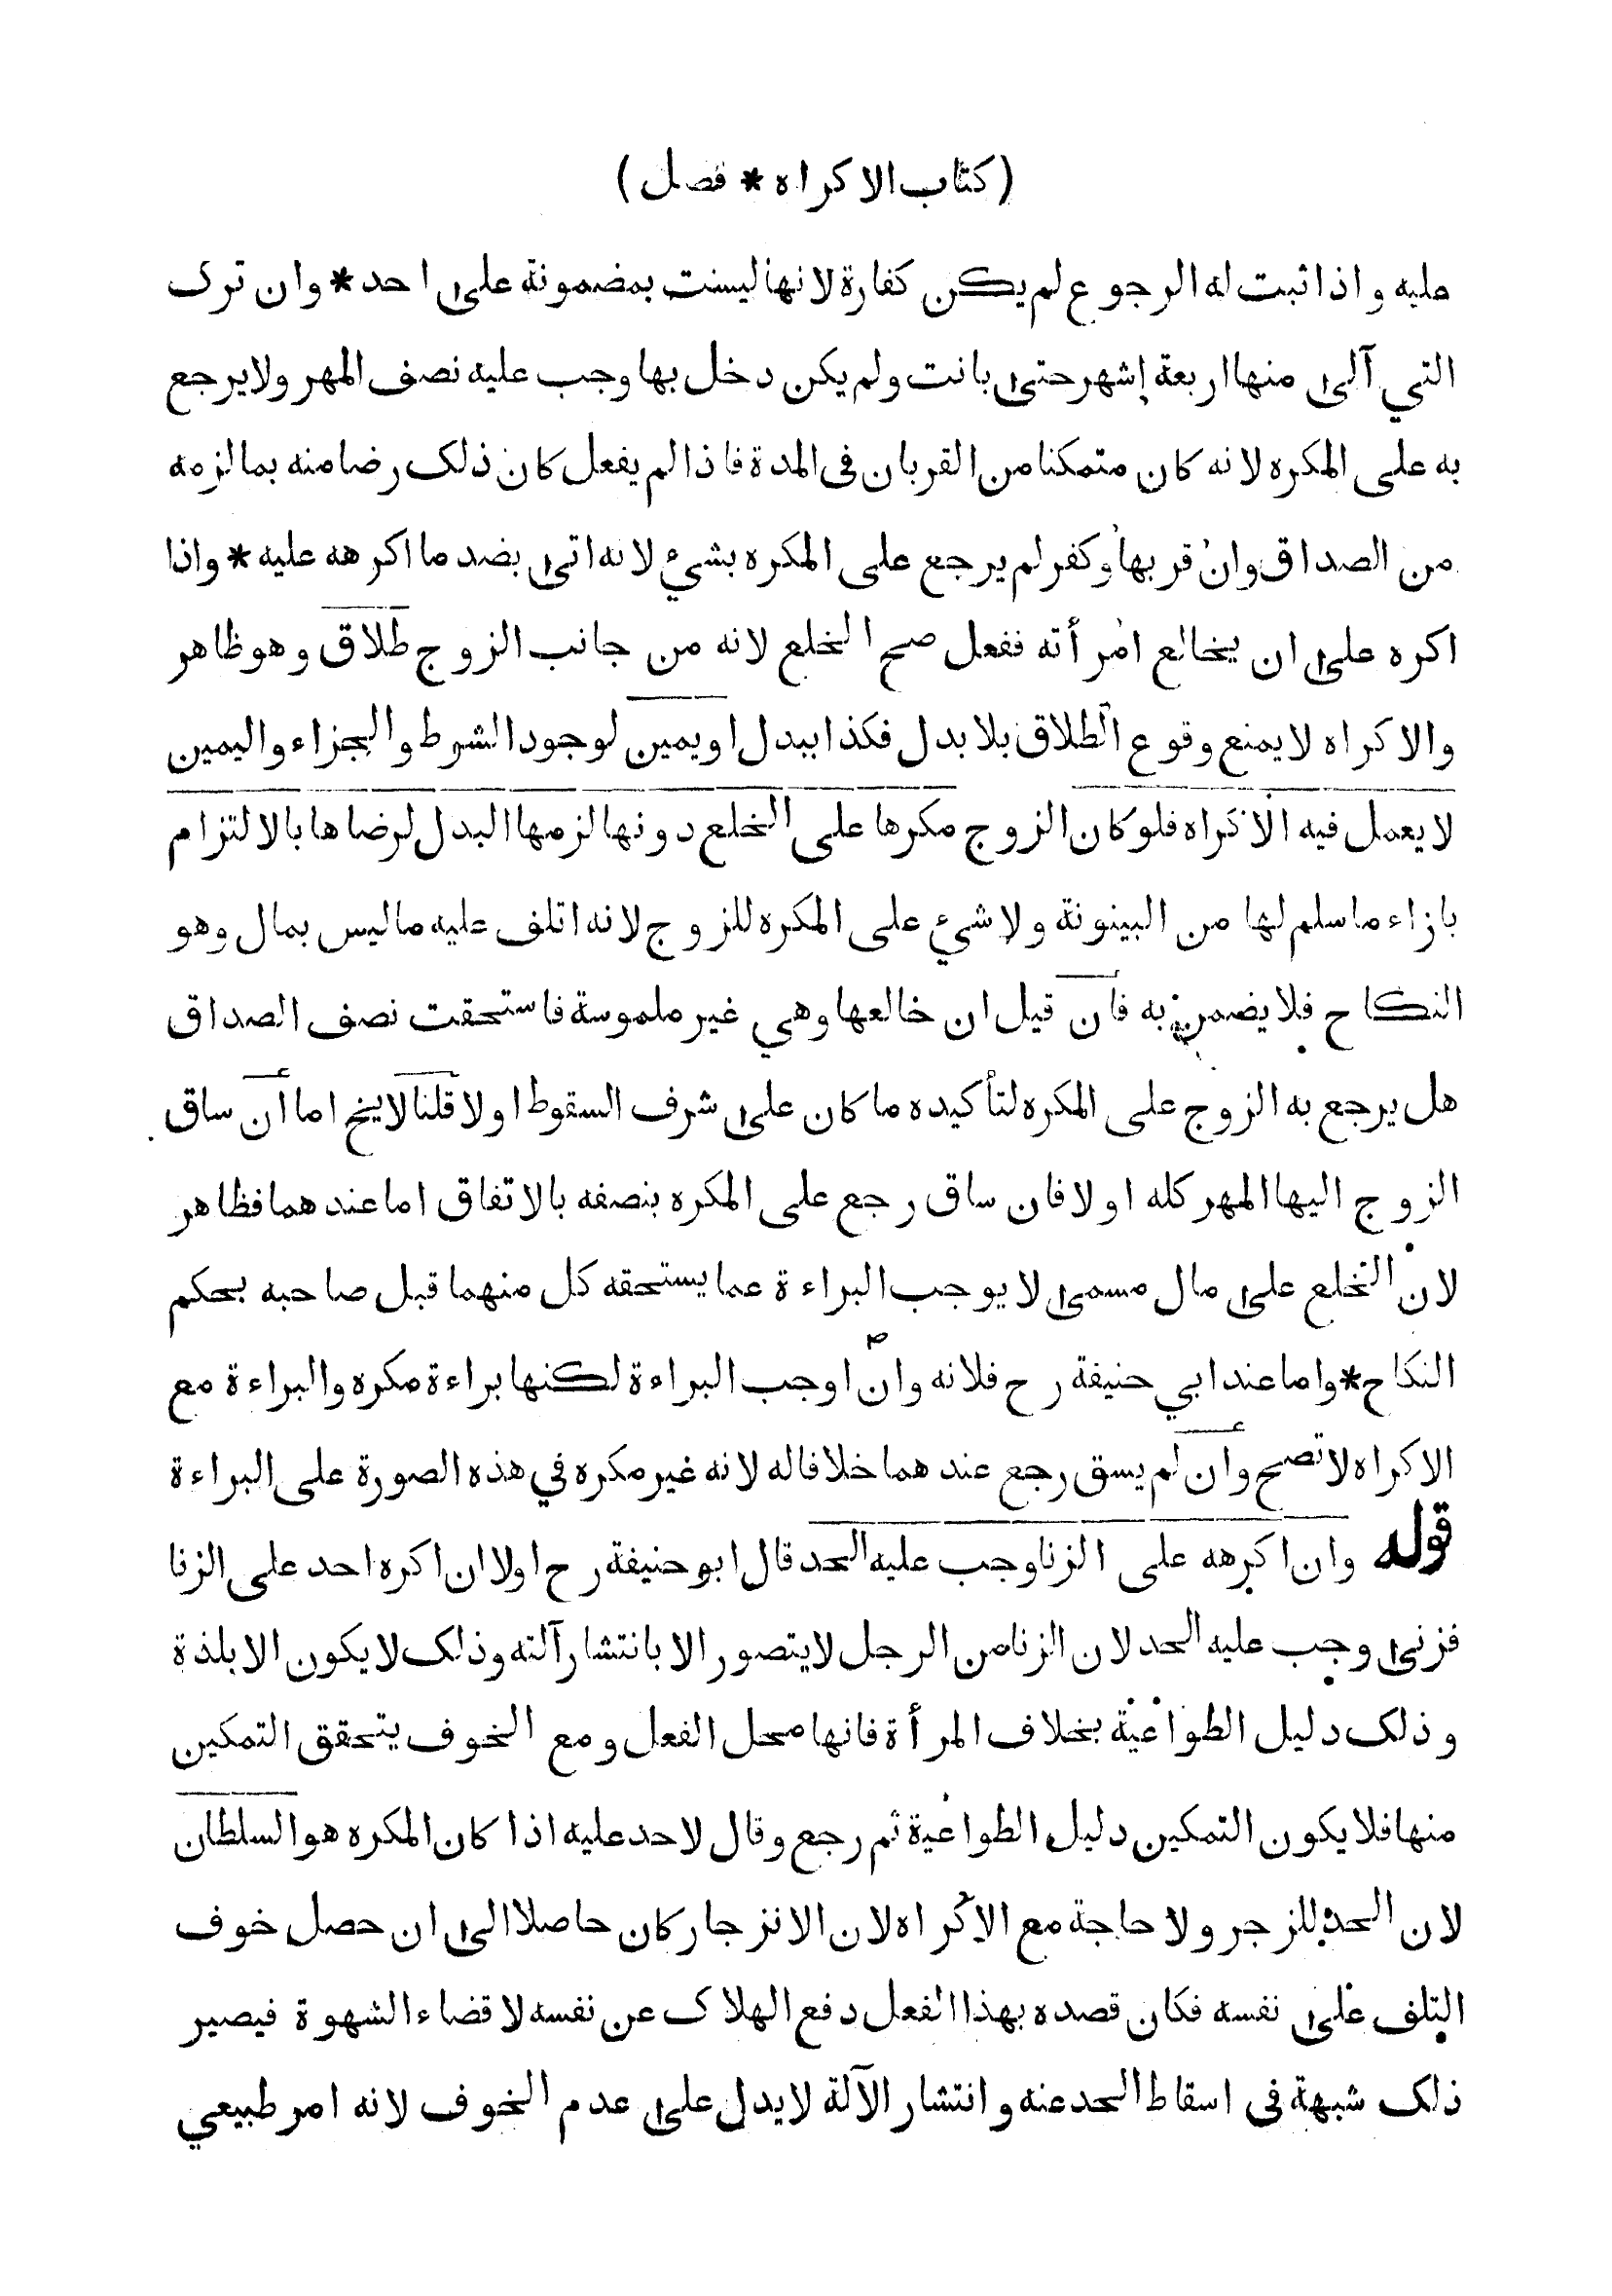 (كتاب الاكراه * فصل)
عليه واذا ثبت له الرجوع لم يكن كفارة لانها ليست بمضمونة على احد * وان ترك
التي آلى منها اربعة اشهر حتى بانت ولم يكن دخل بها وجب عليه نصف المهر ولا يرجع
به على المكره لانه كان متمكنا من القربان فى المدة فاذا لم يفعل كان ذلك رضا منه بما لزمه
من الصداق وان قربها وكفر لم يرجع على المكره بشئ لانه اتى بضد ما اكرهه عليه * واذا
اكره على ان يخالع امرأته ففعل صح الخلع لانه من جانب الزوج طلاق وهو ظاهر
والاكراه لا يمنع وقوع الطلاق بلا بدل فكذا ببدل او يمين لوجود الشرط والجزاء واليمين
لا يعمل فيه الاكراه فلو كان الزوج مكرها على الخلع دونها لزمها البدل لرضاها بالالتزام
بازاء ما سلم لها من البينونة ولا شئ على المكره للزوج لانه اتلف عليه ما ليس بمال وهو
النكاح فلا يضمن به فان قيل ان خالعها وهي غير ملموسة فاستحقت نصف الصداق
هل يرجع به الزوج على المكره لتأكيده ما كان على شرف السقوط اولا قلنا لايخ اما ان ساق
الزوج اليها المهر كله اولا فان ساق رجع على المكره بنصفه بالاتفاق اما عندهما فظاهر
لان الخلع على مال مسمى لا يوجب البراءة عما يستحقه كل منهما قبل صاحبه بحكم
النكاح * واما عند ابي حنيفة رح فلانه وان اوجب البراءة لكنها براءة مكره والبراءة مع
الاكراه لا تصح وان لم يسق رجع عندهما خلافا له لانه غير مكره في هذه الصورة على البراءة
قوله وان اكرهه على الزنا وجب عليه الحد قال ابو حنيفة رح اولا ان اكره احد على الزنا
فزنى وجب عليه الحد لان الزنا من الرجل لا يتصور الا بانتشار آلته وذلك لا يكون الا بلذة
وذلك دليل الطواعية بخلاف المرأة فانها محل الفعل ومع الخوف يتحقق التمكين
منها فلا يكون التمكين دليل الطواعية ثم رجع وقال لا حد عليه اذا كان المكره هو السلطان
لان الحد للزجر ولا حاجة مع الاكراه لان الانزجار كان حاصلا الى ان حصل خوف
التلف على نفسه فكان قصده بهذا الفعل دفع الهلاك عن نفسه لا قضاء الشهوة فيصير
ذلك شبهة فى اسقاط الحد عنه وانتشار الآلة لا يدل على عدم الخوف لانه امر طبيعي